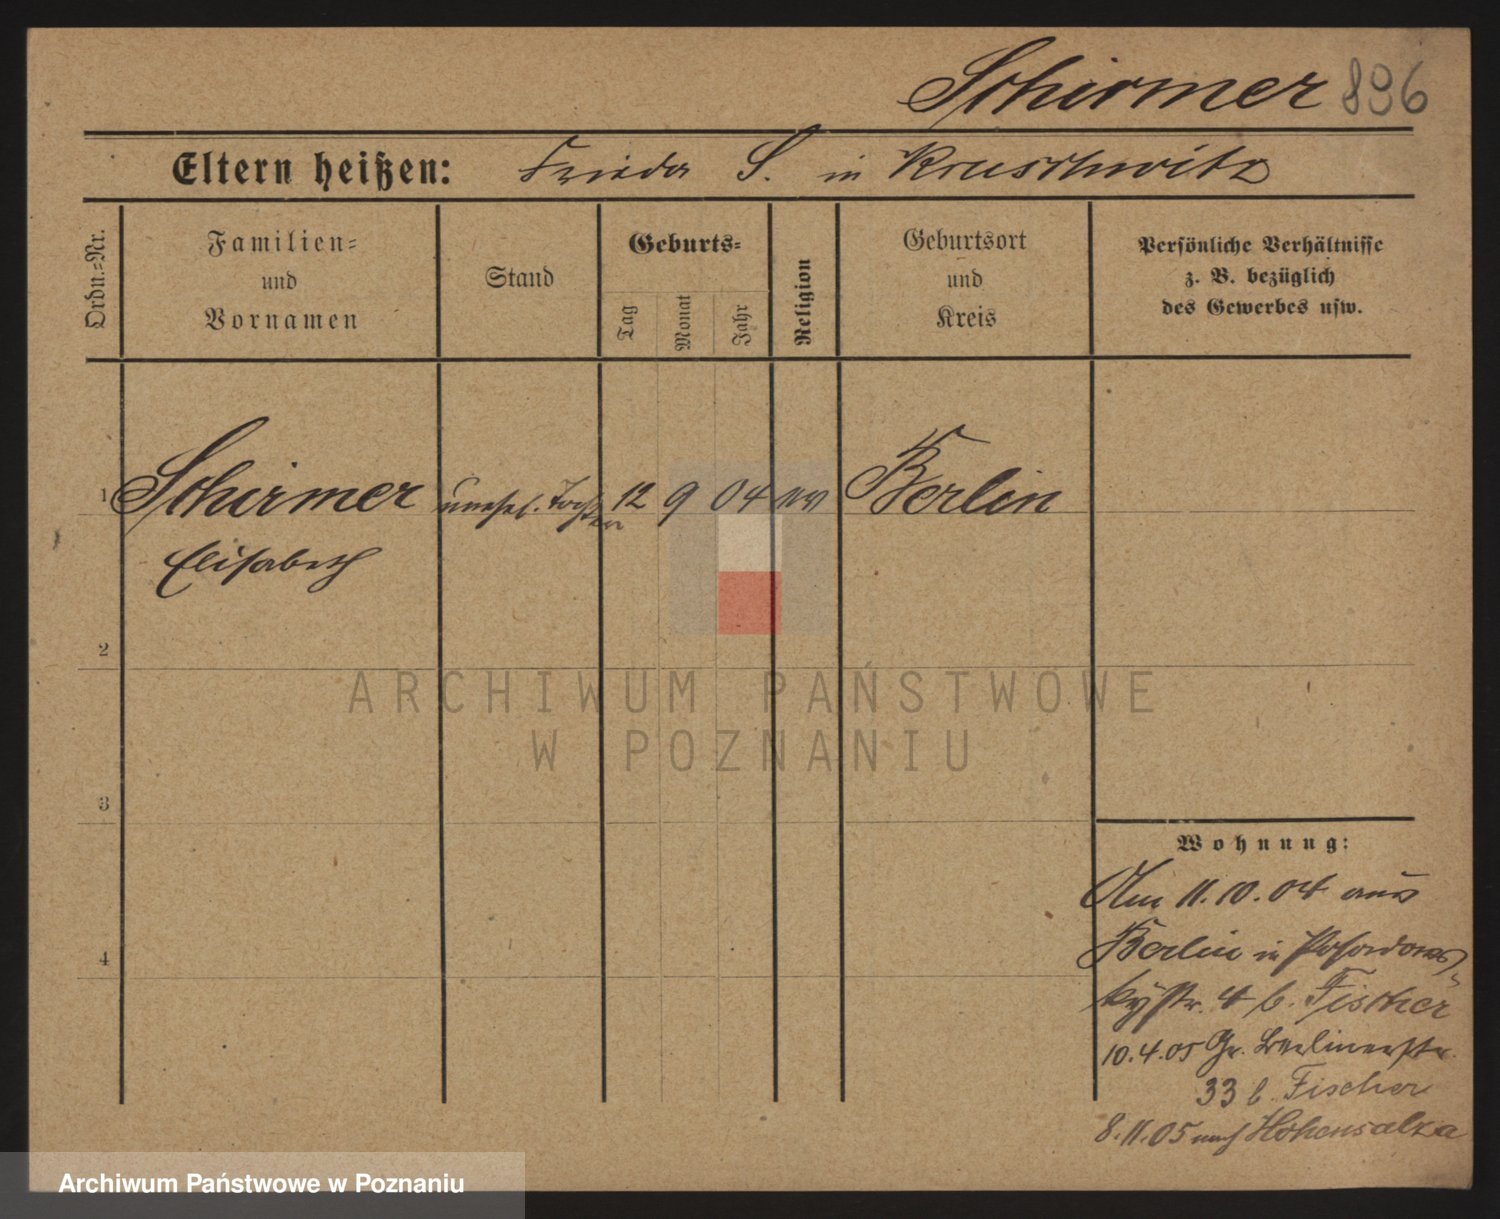 Schirmer 896
Eltern heißen: Frieda S. in Kruschwitz
Ordn.=Nr.
Familien=
und
Vornamen
Stand
Geburts=
Tag
Monat
Jahr
Religion
Geburtsort
und
Kreis
Persönliche Verhältnisse
z. B. bezüglich
des Gewerbes usw.
1 Schirmer unehel. Tochter 12 9 04 ev Berlin
Elisabeth
2
3
4
Wohnung:
Am 11.10.04 aus
Berlin in Posadows
kystr. 4 b. Fischer
10.4.05 Gr. Berlinerstr.
33 b. Fischer
8.11.05 nach Hohensalza
ARCHIWUM PAŃSTWOWE
W POZNANIU
Archiwum Państwowe w Poznaniu